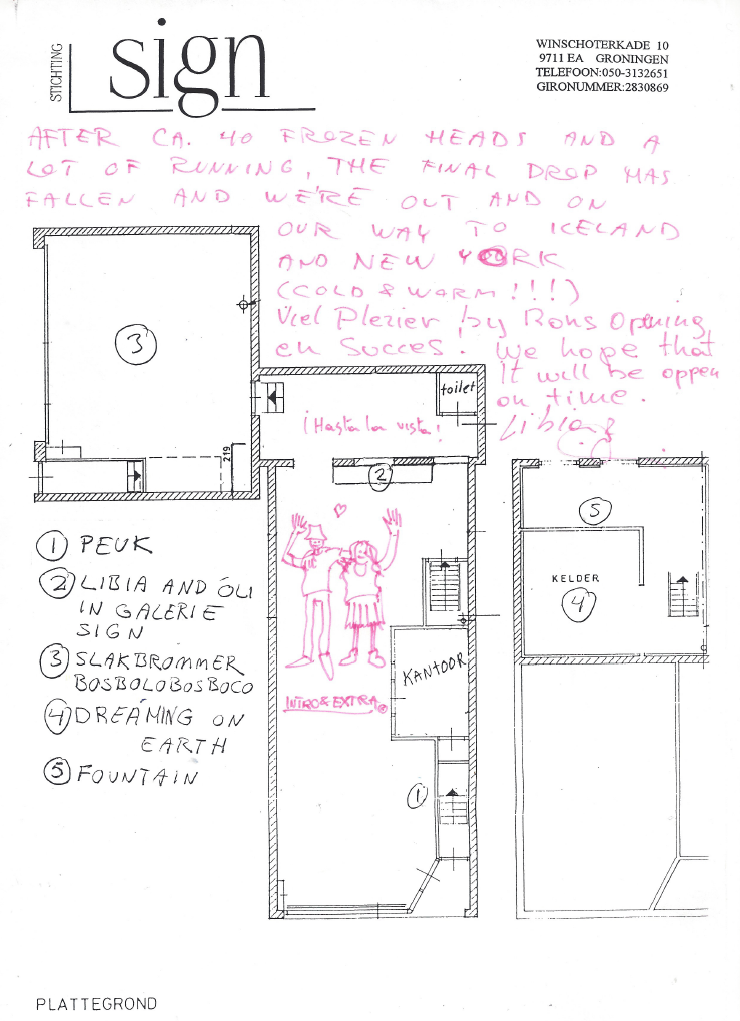 STICHTING
sign
WINSCHOTERKADE 10
9711 EA GRONINGEN
TELEFOON:050-3132651
GIRONUMMER:2830869
AFTER CA. 40 FROZEN HEADS AND A
LOT OF RUNNING, THE FINAL DROP HAS
FALLEN AND WE'RE OUT AND ON
OUR WAY TO ICELAND
AND NEW YORK
(COLD & WARM!!!)
Viel Plezier by Rons Opening
en Succes. We hope that
It will be oppen
on time.
Libia &
3
toilet
¡Hasta la vista!
219
2
5
KELDER
4
KANTOOR
INTRO & EXTRA
1
1 PEUK
2 LIBIA AND ÓLI
IN GALERIE
SIGN
3 SLAKBROMMER
BOSBOLOBOSBOCO
4 DREAMING ON
EARTH
5 FOUNTAIN
PLATTEGROND